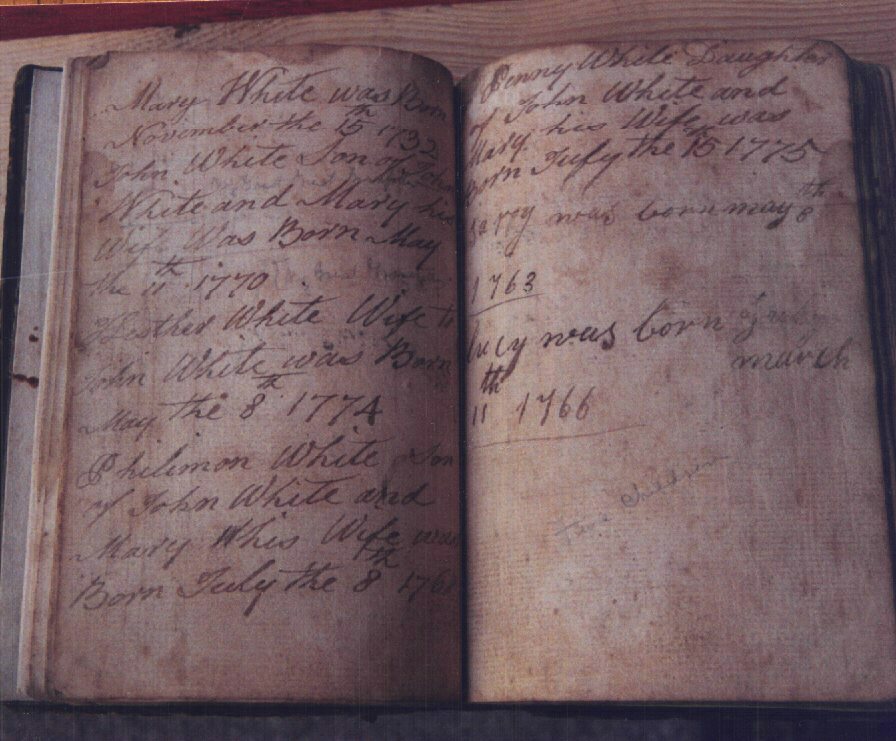 Mary White was Born
November the 15th 1732
John White Son of John
White and Mary his
Wife Was Born May
the 11th 1770
Heather White Wife to
John White was Born
May the 8th 1774
Philimon White Son
of John White and
Mary his Wife was
Born July the 8th
Penny White Daughter
of John White and
Mary his Wife was
Born July the 15th 1775
was born may 8th
1763
Lucy was born
march
11th 1766
Children